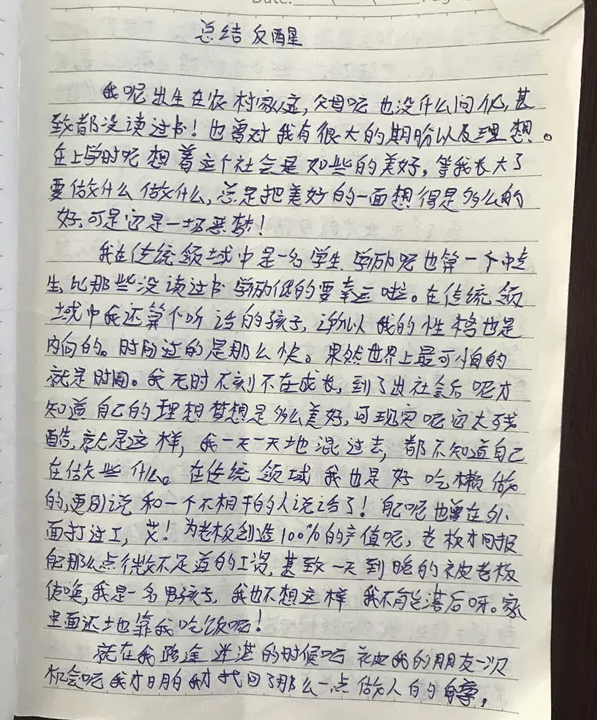 Date:
总结 反醒
我呢出生在农村家庭,父母呢也没什么间仍,甚
致都没读过书!也曾对我有很大的期盼以及理想。
在上学时呢想着这个社会是如些的美好,等我长大了
要做什么做什么,总是把美好的一面想得是多么的
好,可是这是一场恶梦!
我在传统领域中是一名学生,学历呢也算一个中专
生,比那些没读过书学历低的要幸运啦。在传统领
域中我还算个听话的孩子,所以我的性格也是
内向的。时间过的是那么快。果然世界上最可怕的
就是时间。我无时不刻不在成长,到了出社会后呢才
知道自己的理想梦想是多么美好,可现实呢这太残
酷,就是这样,我一天一天地混过去,都不知道自己
在做些什么。在传统领域我也是好吃懒做
的,更别说和一个不相干的人说话了!自己呢也曾在外
面打过工,艾!为老板创造100%的产值呢,老板才回报
自己那么点微不足道的工资,甚致一天到晚的被老板
使唤,我是一名男孩子,我也不想这样 我不能落后呀。家
里面还也靠我吃饭呢!
就在我路途迷湛的时候呢 被我的朋友一次
机会呢我才明白我才找回了那么一点做人的自尊,